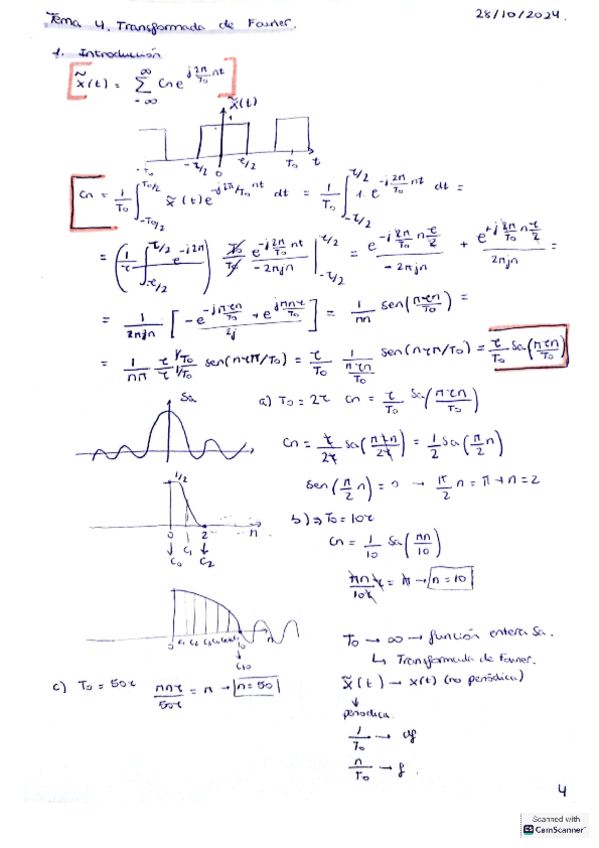 Tema 4. Transformada de Fourier. 28/10/2024.
1. Introducción
x̃(t) = ∑_{-∞}^{∞} Cn e^{j 2π/T₀ nt}
x̃(t)
1
-T₀ -τ/2 0 τ/2 T₀ t
Cn = 1/T₀ ∫_{-T₀/2}^{T₀/2} x̃(t) e^{-j2π/T₀ nt} dt = 1/T₀ ∫_{-τ/2}^{τ/2} 1·e^{-j 2π/T₀ nt} dt =
= (1/τ ∫_{-τ/2}^{τ/2} e^{-j2π}) T₀/T₀ e^{-j 2π/T₀ nt}/-2πjn |_{-τ/2}^{τ/2} = e^{-j 2π/T₀ n τ/2}/-2πjn + e^{+j 2π/T₀ n τ/2}/2πjn =
= 1/2πjn [-e^{-jπτn/T₀} + e^{jπnτ/T₀}]/2j = 1/πn sen(πτn/T₀) =
= 1/nπ τ/τ 1/T₀/1/T₀ sen(nτπ/T₀) = τ/T₀ 1/(πτn/T₀) sen(nτπ/T₀) = τ/T₀ Sa(πτn/T₀)
Sa
a) T₀ = 2τ Cn = τ/T₀ Sa(πτn/T₀)
Cn = τ/2τ Sa(πτn/2τ) = 1/2 Sa(π/2 n)
1/2
0 1 2 n
C₀ C₁ C₂
b) ⇒ T₀ = 10τ
Cn = 1/10 Sa(πn/10)
πnτ/10τ = π → n = 10
0 10 n
C₁₀
T₀ → ∞ → función entera Sa.
↳ Transformada de Fourier.
c) T₀ = 50τ πnτ/50τ = π → n = 50
x̃(t) → x(t) (no periódica)
↓
periodica.
1/T₀ → df
n/T₀ → f.
4
Scanned with
CamScanner